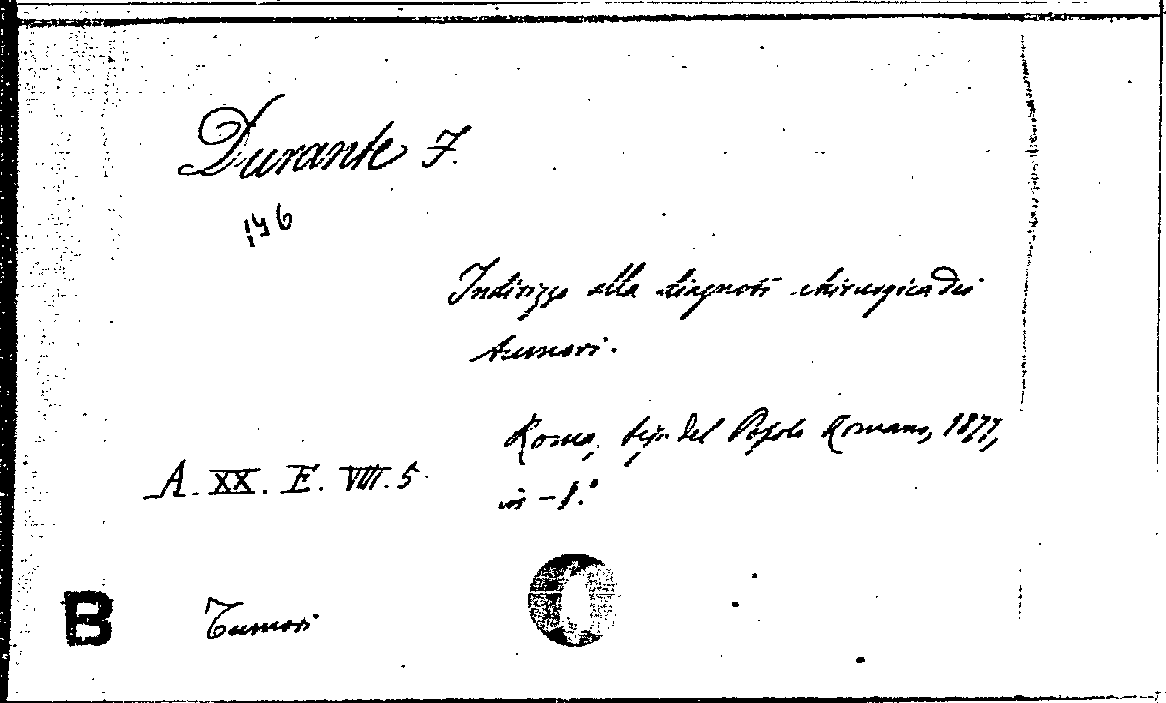 Durante F.
146
Indirizzo alla diagnosi chirurgica dei
tumori.
Roma, tip. del Popolo Romano, 1877,
in-8.°
A. XX. E. VIII. 5.
B
Tumori